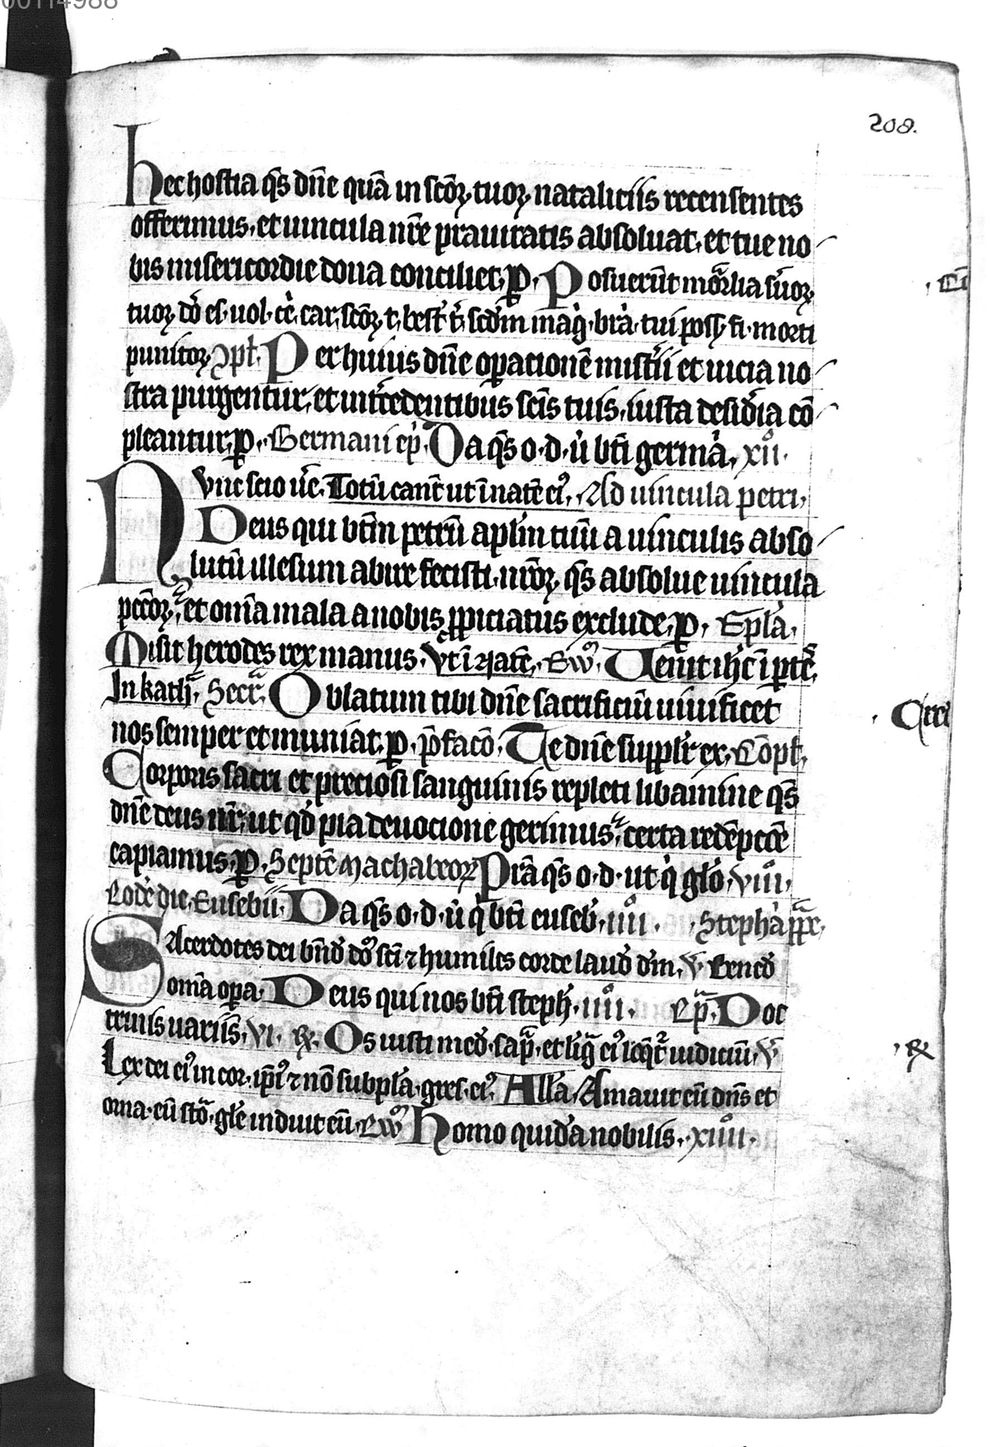 00114988
208.
hec hostia q̄s dn̄e quā in sc̄oꝝ tuoꝝ nataliciis recensentes
offerimus, et uincula nr̄e prauitatis absoluat, et tue no
bis misericordie dona conciliet, ꝑ. Posuerūt
tuoꝝ
punitoꝝ Per huius dn̄e oꝑacionē mist'ii et uicia no
stra purgentur, et int'cedentibus sc̄is tuis, iusta desid'ia cō
pleantur, ꝑ. Germani ep̄i. Da q̄s o. d. ut bt̄i germā. xii.
Nunc scio ue. Totū cant' ut ī natē ei9. Ad uincula petri,
Deus qui bt̄m petrū apl̄m tuū a uinculis abso
lutū illesum abire fecisti, nr̄oꝝ q̄s absolue uincula
pccōꝝ, et om̄ia mala a nobis ꝓpiciatus exclude, ꝑ. Epl̄a.
Misit herodes rex manus. Ut ī natē. Ew̄. Uenit ih̄c ī ꝑtē.
In kath. Secr. Oblatum tibi dn̄e sacrificiū uiuificet
nos semper et muniat, ꝑ. p̄facō. Te dn̄e suppl'r ex. Cōpl.
Corporis sacri et preciosi sanguinis repleti libamine q̄s
dn̄e deus nr̄, ut qd̄ pia deuocione gerimus, certa redēpcōe
capiamus, ꝑ. Septē Machabeoꝝ Prā q̄s o. d. ut q̄ glō. viii.
Eodē die. Eusebii. Da q̄s o. d. ut q̄ bt̄i euseb. iiii. Steph̄a pp̄e,
Sacerdotes dei bn̄d dō sc̄i ⁊ humiles corde laud dm̄. V̄ Bened
Somīa oꝑa. Deus qui nos bt̄i steph. iiii. Ep̄. Doc
trinis uariis, vi. ꝶ. Os iusti med. sap̄. et lig̃ ei9 loq̄t' iudiciū. V̄
Lex dei ei9 in cor. ip̄i9 ⁊ nō subpl̄a. gres. ei9. All'a. Amauit eū dn̄s et
orna. eū stō. gl̄e induit eū. Ew̄. Homo quidā nobilis. xiiii.